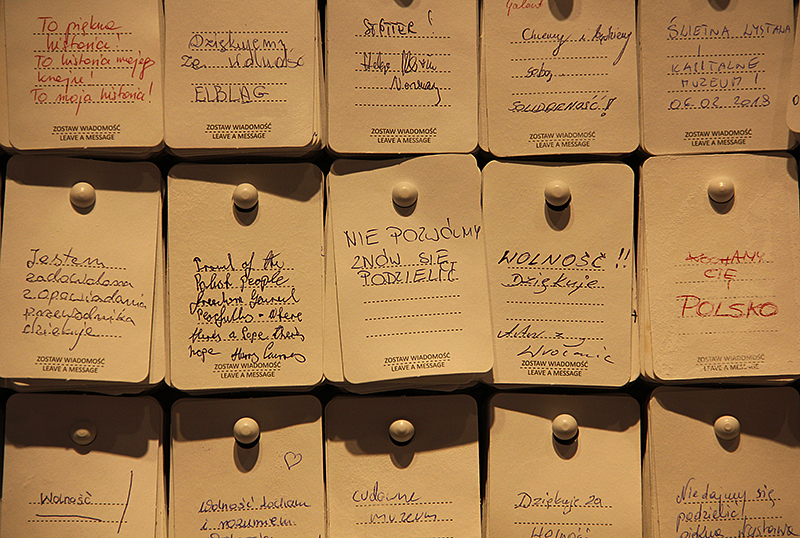 To piękna
historia!
To historia mojego
kraju!
To moja historia!
ZOSTAW WIADOMOŚĆ
LEAVE A MESSAGE
Dziękujemy
za wolność
ELBLĄG
ZOSTAW WIADOMOŚĆ
LEAVE A MESSAGE
Norway
ZOSTAW WIADOMOŚĆ
LEAVE A MESSAGE
Chcemy i będziemy
sobą
SOLIDARNOŚĆ!!
ZOSTAW WIADOMOŚĆ
LEAVE A MESSAGE
ŚWIETNA WYSTAWA
I
KAPITALNE
MUZEUM!
06.02.2018
ZOSTAW WIADOMOŚĆ
LEAVE A MESSAGE
Jestem
zadowolona
z opowiadania
przewodnika
dziękuje
ZOSTAW WIADOMOŚĆ
LEAVE A MESSAGE
Proud of the
Polish People
freedom
where
theres a Pope theres
hope
ZOSTAW WIADOMOŚĆ
LEAVE A MESSAGE
NIE POZWÓLMY
ZNÓW SIĘ
PODZIELIĆ
ZOSTAW WIADOMOŚĆ
LEAVE A MESSAGE
WOLNOŚĆ!!
Dziękuje
ZOSTAW WIADOMOŚĆ
LEAVE A MESSAGE
KOCHAMY
CIĘ
POLSKO
ZOSTAW WIADOMOŚĆ
LEAVE A MESSAGE
Wolność
Wolność kocham
i rozumiem
cudowne
muzeum
Dziękuje za
Wolność
Nie dajmy się
podzielić!
piękna wystawa